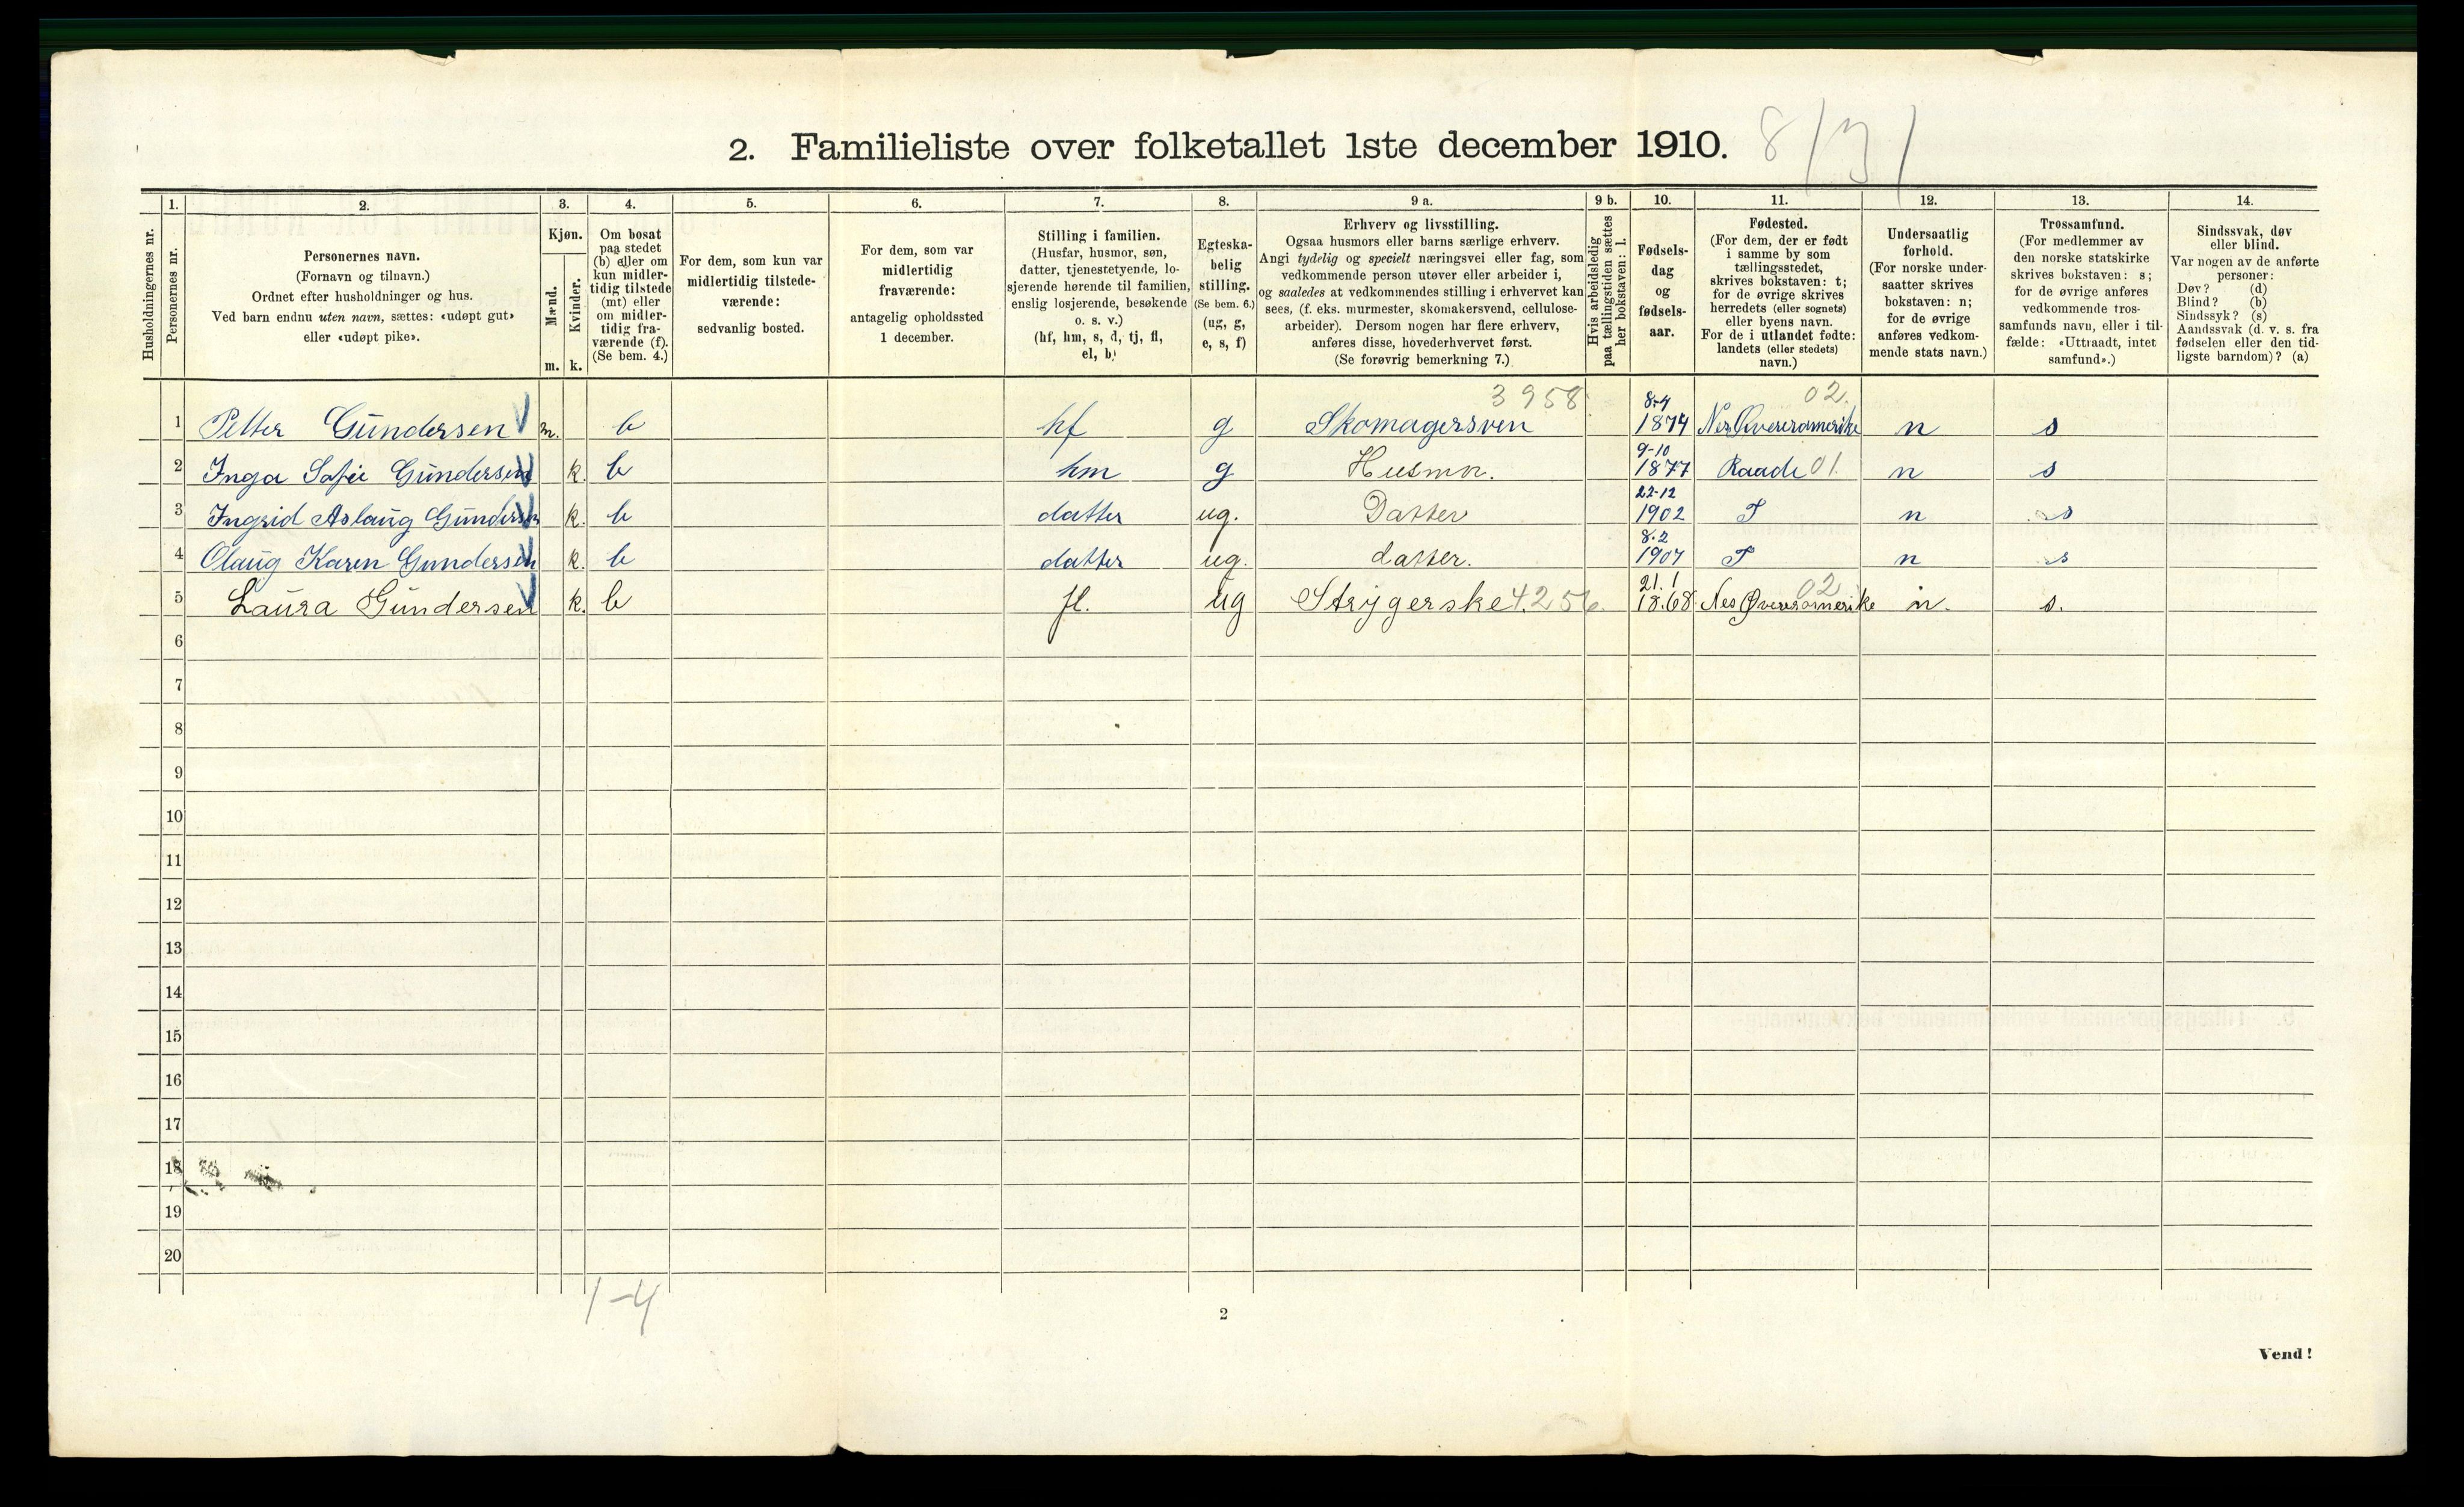 2. Familieliste over folketallet 1ste december 1910. 8/3/
Husholdningernes nr.
1. Personernes nr.
2. Personernes navn.
(Fornavn og tilnavn.)
Ordnet efter husholdninger og hus.
Ved barn endnu uten navn, sættes: «udøpt gut»
eller «udøpt pike».
3. Kjøn.
Mænd. m.
Kvinder. k.
4. Om bosat
paa stedet
(b) eller om
kun midler-
tidig tilstede
(mt) eller
om midler-
tidig fra-
værende (f).
(Se bem. 4.)
5. For dem, som kun var
midlertidig tilstede-
værende:
sedvanlig bosted.
6. For dem, som var
midlertidig
fraværende:
antagelig opholdssted
1 december.
7. Stilling i familien.
(Husfar, husmor, søn,
datter, tjenestetyende, lo-
sjerende hørende til familien,
enslig losjerende, besøkende
o. s. v.)
(hf, hm, s, d, tj, fl,
el, b)
8. Egteska-
belig
stilling.
(Se bem. 6.)
(ug, g,
e, s, f)
9 a. Erhverv og livsstilling.
Ogsaa husmors eller barns særlige erhverv.
Angi tydelig og specielt næringsvei eller fag, som
vedkommende person utøver eller arbeider i,
og saaledes at vedkommendes stilling i erhvervet kan
sees, (f. eks. murmester, skomakersvend, cellulose-
arbeider). Dersom nogen har flere erhverv,
anføres disse, hovederhvervet først.
(Se forøvrig bemerkning 7.)
9 b. Hvis arbeidsledig
paa tællingstiden sættes
her bokstaven: l.
10. Fødsels-
dag
og
fødsels-
aar.
11. Fødested.
(For dem, der er født
i samme by som
tællingsstedet,
skrives bokstaven: t;
for de øvrige skrives
herredets (eller sognets)
eller byens navn.
For de i utlandet fødte:
landets (eller stedets)
navn.)
12. Undersaatlig
forhold.
(For norske under-
saatter skrives
bokstaven: n;
for de øvrige
anføres vedkom-
mende stats navn.)
13. Trossamfund.
(For medlemmer av
den norske statskirke
skrives bokstaven: s;
for de øvrige anføres
vedkommende tros-
samfunds navn, eller i til-
fælde: «Uttraadt, intet
samfund».)
14. Sindssvak, døv
eller blind.
Var nogen av de anførte
personer:
Døv? (d)
Blind? (b)
Sindssyk? (s)
Aandssvak (d. v. s. fra
fødselen eller den tid-
ligste barndom)? (a)
1 Petter Gundersen m. b hf g Skomagersven 3958 8-4 1874 Nes Øvreromerike 02. n s
2 Inga Sofie Gundersen k. b hm g Husmor. 9-10 1877 Raade 01. n s
3 Ingrid Aslaug Gundersen k. b datter ug. Datter 22-12 1902 T n s
4 Olaug Karen Gundersen k. b datter ug. datter. 8.2 1907 T n s
5 Laura Gundersen k. b fl. ug Strygerske 4256. 21.1 18.68 Nes Øvreromerike 02 n. s.
6
7
8
9
10
11
12
13
14
15
16
17
18
19
20
1-4
2
Vend!